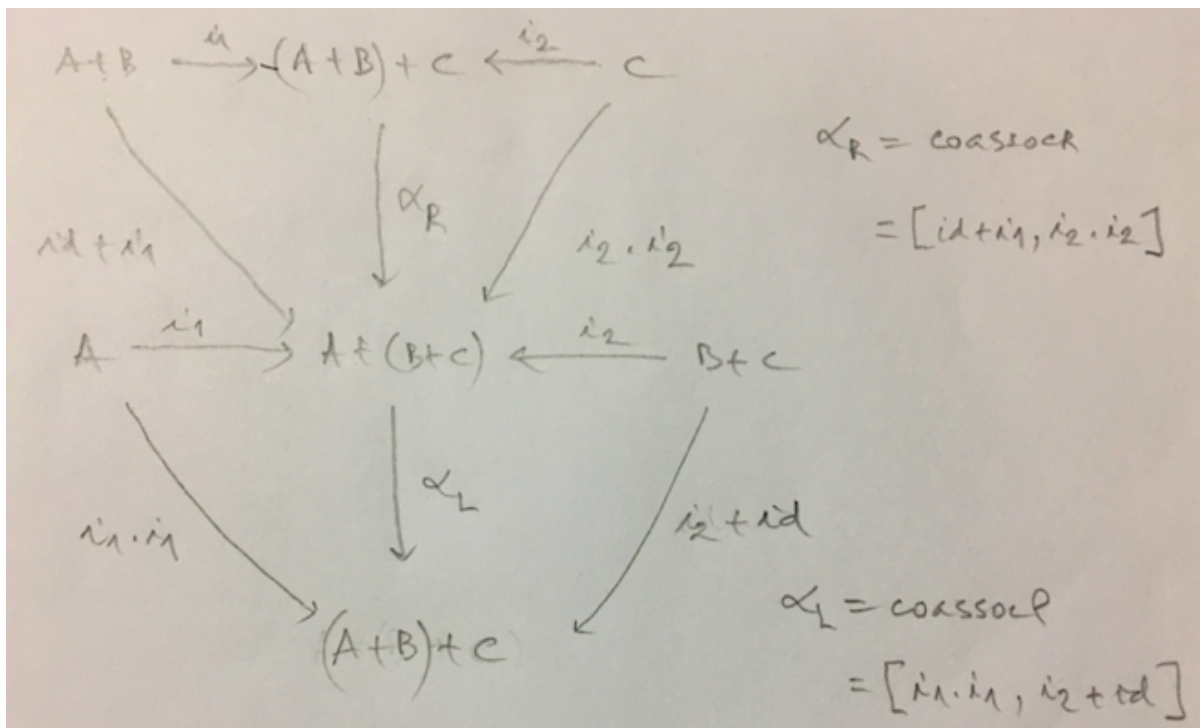 A+B i1 (A+B)+C i2 C
αR = coassocr
αR
id+i1 i2.i2 = [id+i1, i2.i2]
A i1 A+(B+C) i2 B+C
αL
i1.i1 i2+id
αL = coassocl
(A+B)+C
= [i1.i1, i2+id]